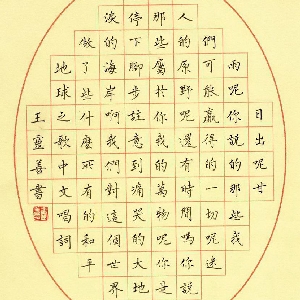 日出呢廿
雨呢你說的那些我
們可能贏得的一切呢迷
人的原野呢還有時間嗎你說
那些屬於你我的萬物呢你是
停下腳步註意到痛哭的大地
淚的海岸啊我們對這個世界
做了些什麼所有的和平
地球之歌中文唱詞
王靈善書